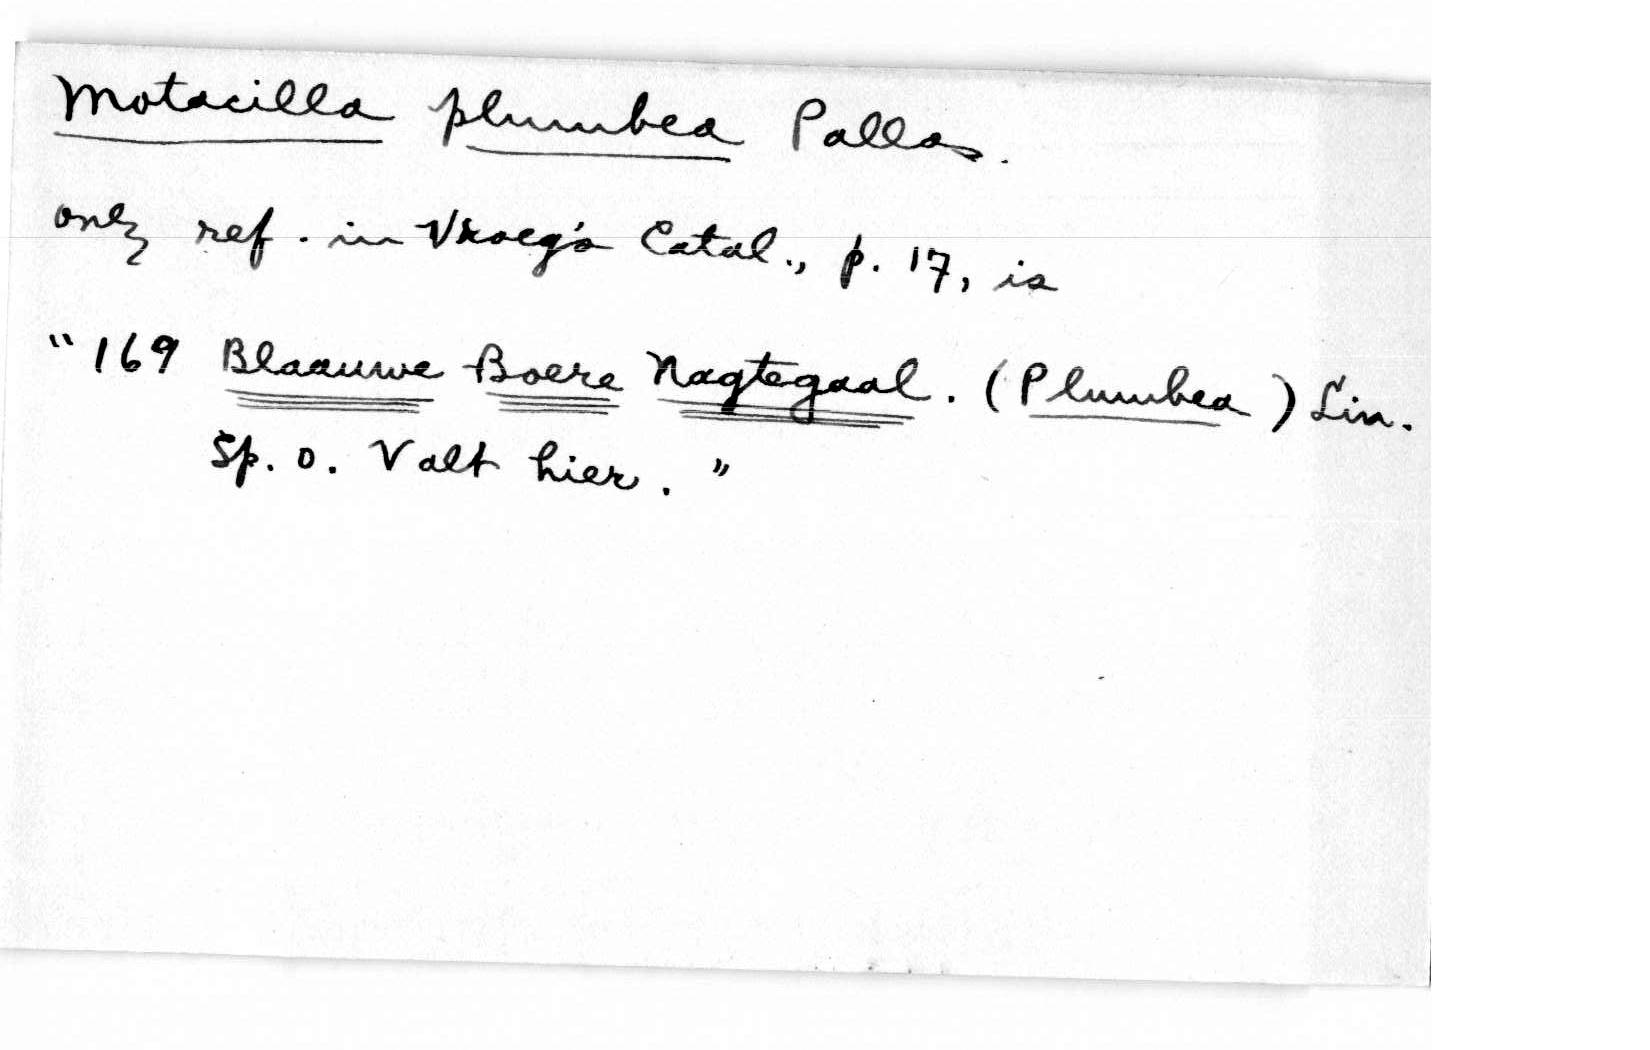 Motacilla plumbea Pallas.
only ref. in Vroeg's Catal., p. 17, is
"169 Blaauwe Boere Nagtegaal. (Plumbea) Lin.
Sp. O. Valt hier."